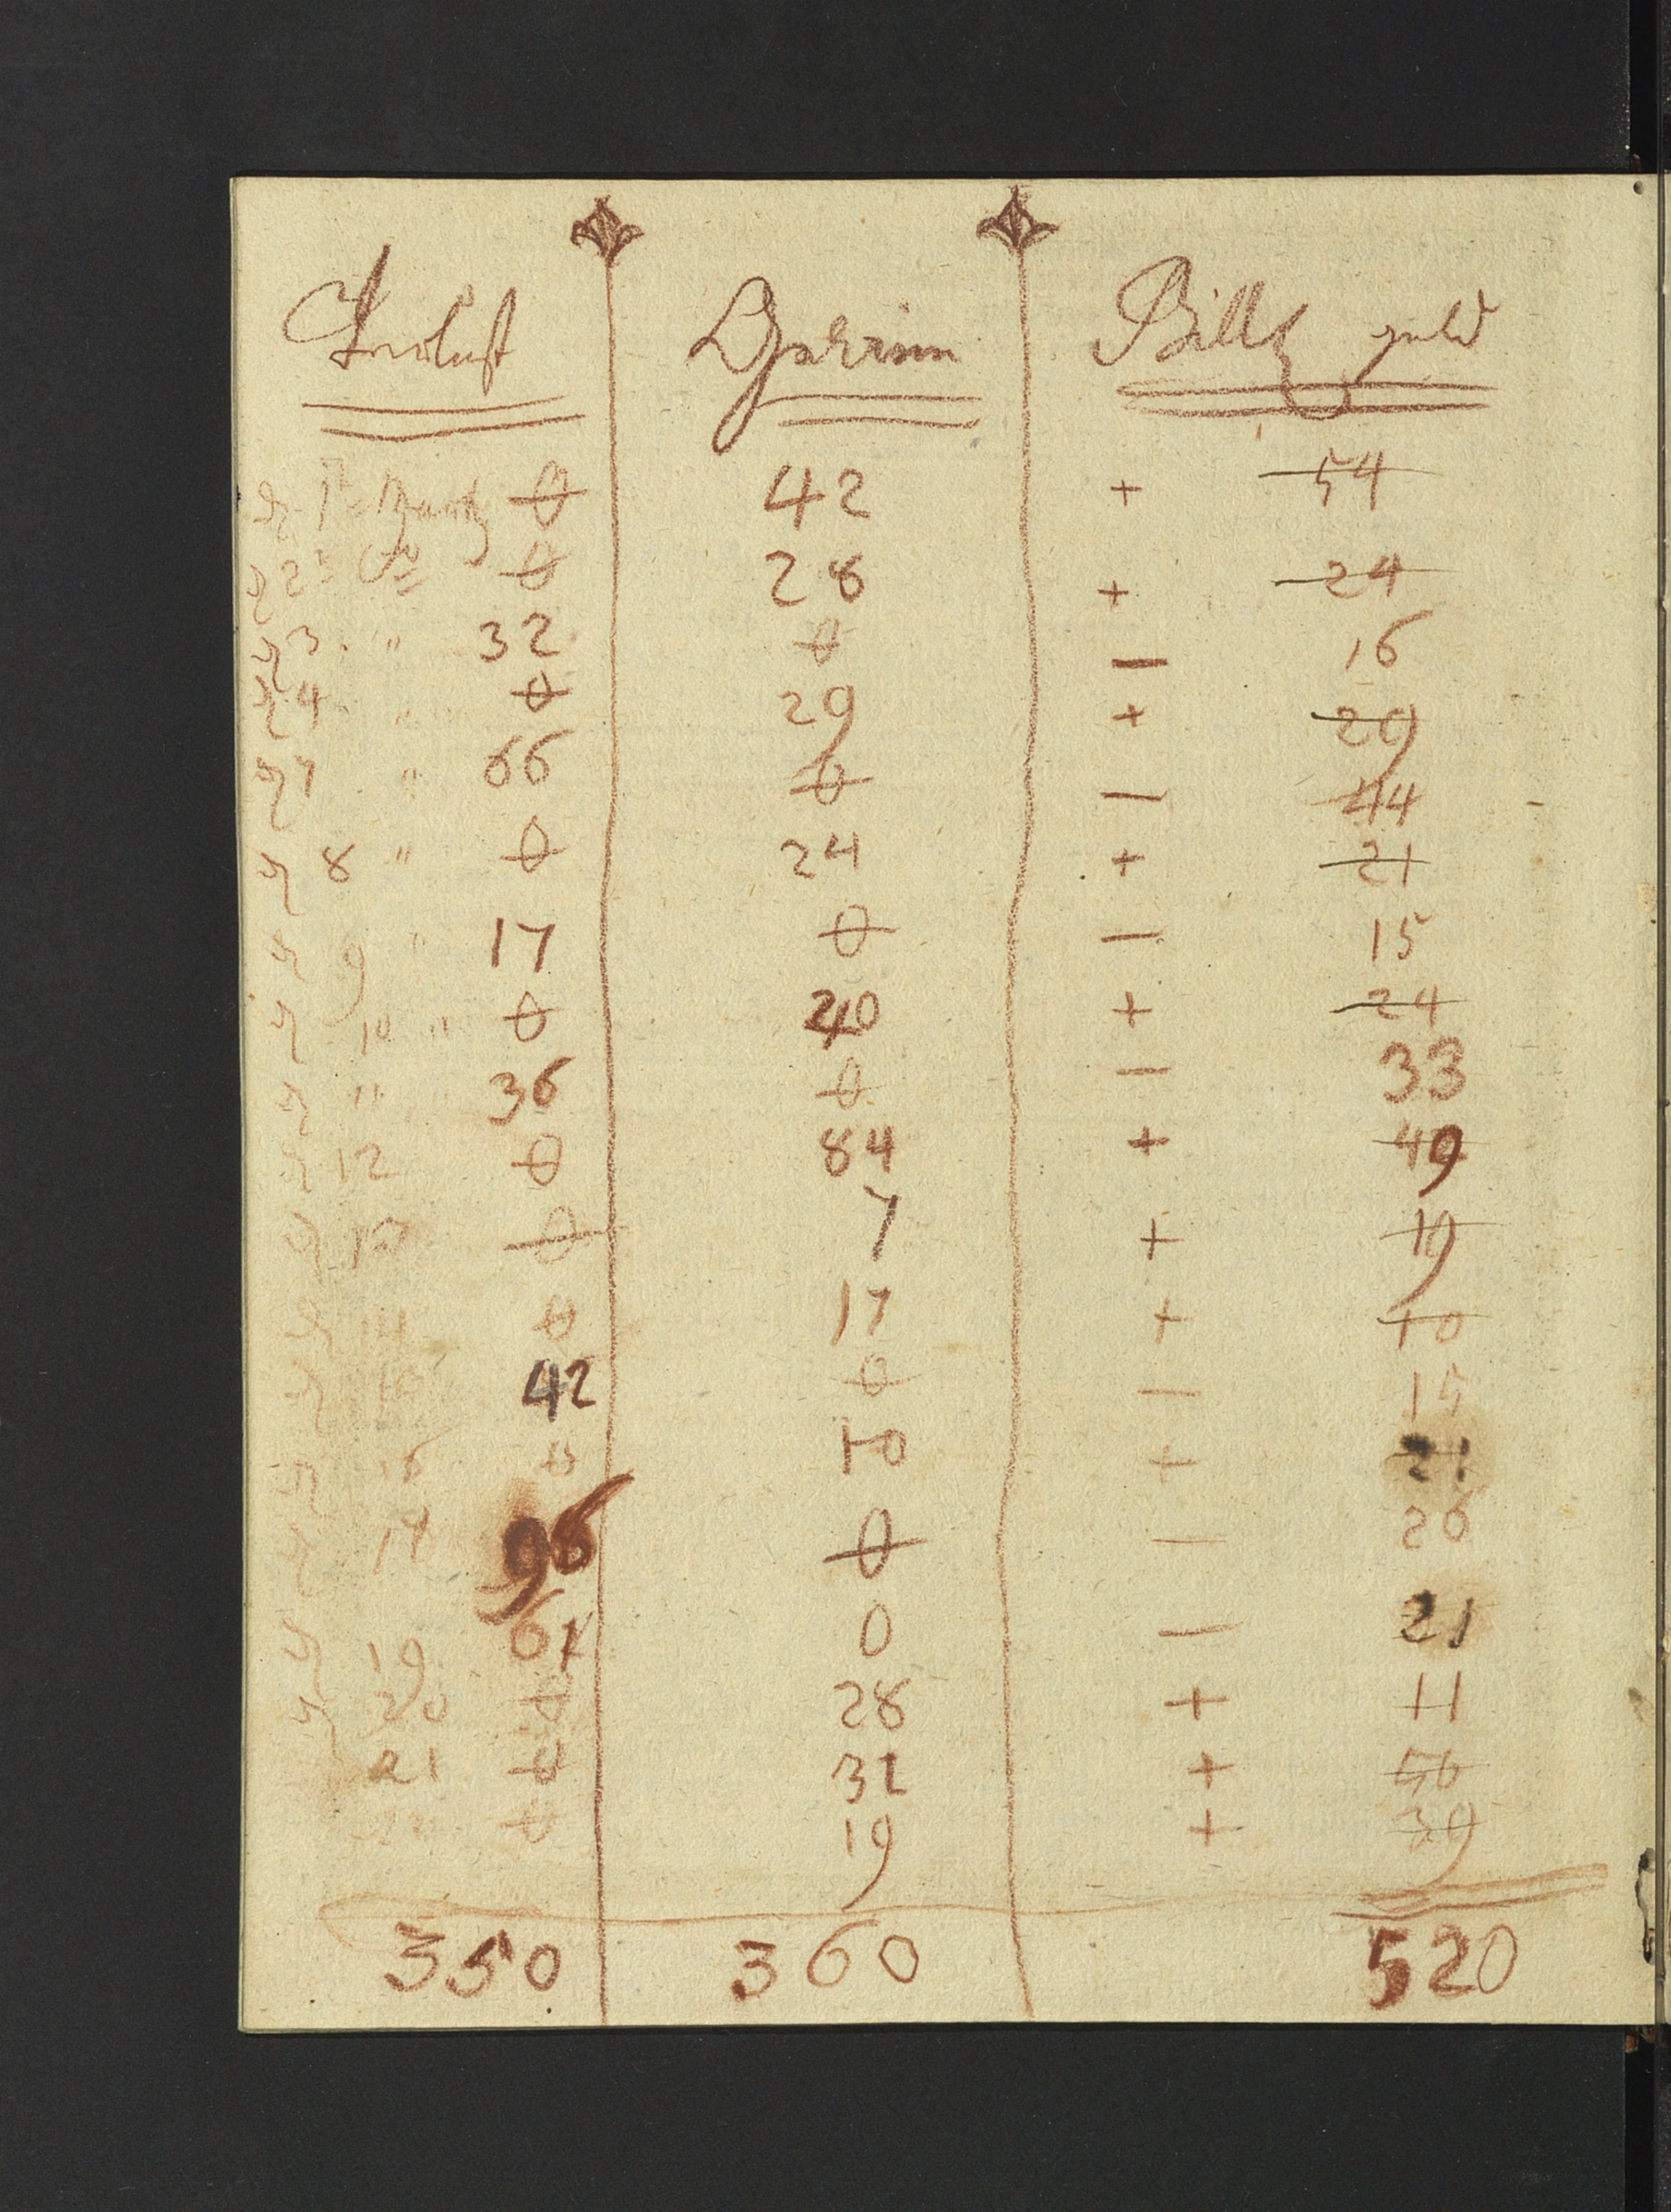 Verlust Gewinn Bill geld
d 1t Martz 0 42 + 54
d 2t do 0 28 + 24
d 3. " 32 0 — 16
d 4. " 0 29 + 29
d 7 " 66 0 — 44
d 8 " 0 24 + 21
d 9 " 17 0 — 15
d 10 " 0 40 + 24
d 11 " 36 0 — 33
d 12 0 84 + 49
d 13 0 7 + 19
d 14 0 17 + 10
d 15 42 0 — 15
d 16 0 10 + 21
d 17 96 0 — 26
d 19 61 0 — 21
d 20 0 28 + 11
21 0 32 + 56
22 0 19 + 39
350 360 520